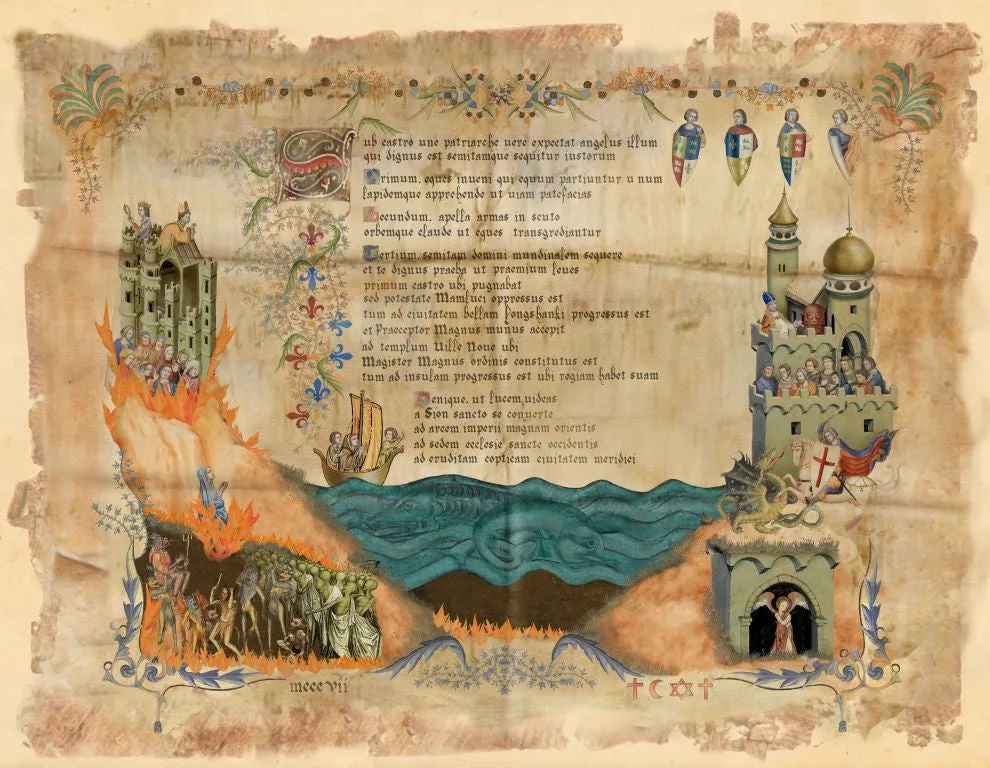 Sub castro une patriarche uere expectat angelus illum
qui dignus est semitamque sequitur iustorum
Primum, eques inueni qui equum partiuntur unum
lapidemque apprehende ut uiam patefacias
Secundum, apella armas in scuto
orbemque claude ut eques transgrediantur
Tertium, semitam domini mundinalem sequere
et te dignus praeba ut praemium leues
primum castro ubi pugnabat
sed potestate Mamluci oppressus est
tum ad ciuitatem bellam Longshanki progressus est
et Praeceptor Magnus munus accepit
ad templum Uille Noue ubi
Magister Magnus ordinis constitutus est
tum ad insulam progressus est ubi regiam habet suam
Denique, ut lucem uideas
a Sion sancto se conuerte
ad arcem imperii magnam orientis
ad sedem ecclesie sancte occidentis
ad eruditam copticam ciuitatem meridiei
mcccvii